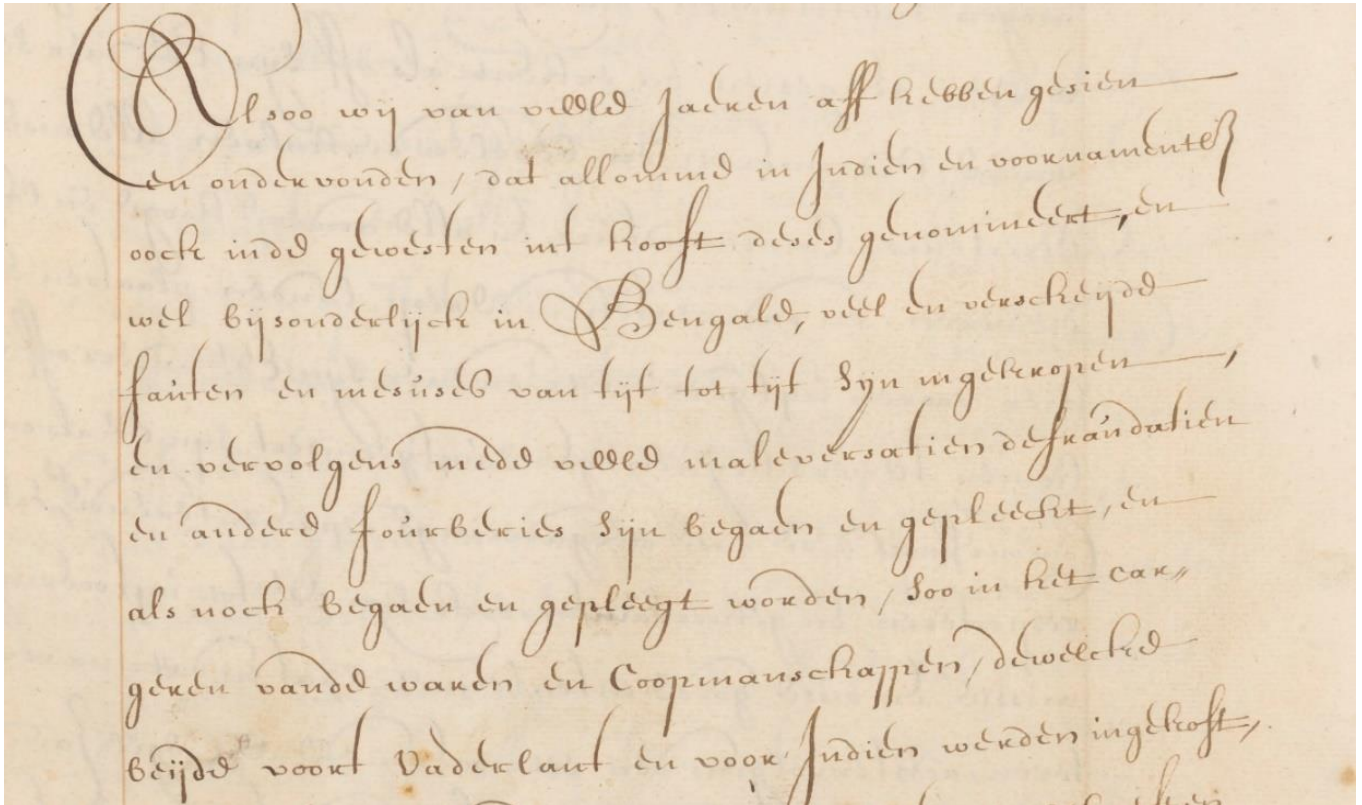 Alsoo wij van veele Jaeren aff hebben gesien
en ondervonden, dat allomme in Indien en voornamentl
oock inde gewesten int hooft deses genomineert, en
wel bijsonderlijck in Bengale, veel en verscheijde
fauten en mesuses van tijt tot tijt sijn ingekropen,
en vervolgens mede veele maleversatien defraudatien
en andere fourberies sijn begaen en gepleecht, en
als noch begaen en gepleegt worden, soo in het car„
geren vande waren en Coopmanschappen, dewelcke
beijde voort Vaderlant en voor Indien werden ingekoft,